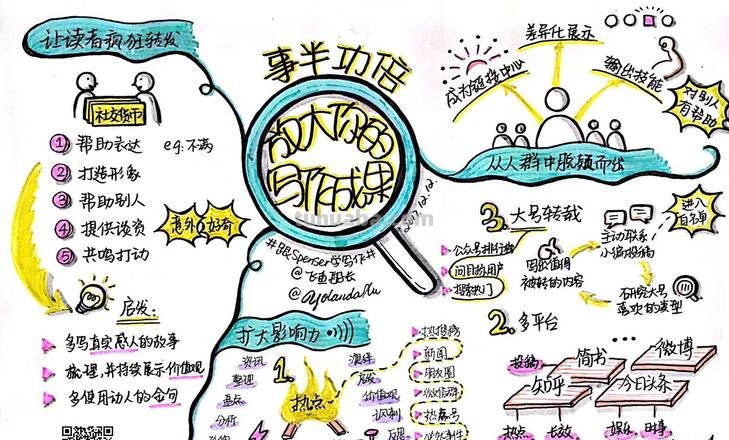 让读者疯狂转发
社交货币
1 帮助表达 eg:不满
2 打造形象
3 帮助别人
4 提供谈资
5 共鸣打动
意外 好奇
启发:
多写真实感人的故事
梳理,并持续展示价值观
多使用动人的金句
事半功倍
放大你的
写作成果
2017.12.12.
#跟Spenser学写作#
@飞鱼船长
@YolandaXu
成为链接中心
差异化展示
输出技能
对别人有帮助
从人群中脱颖而出
3.大号转载
公众号排行榜
问目标用户
搜索热门
写出值得
被转的内容
主动联系
小编投稿
进入白名单
研究大号
喜欢的类型
2.多平台
投稿
简书
微博
知乎
今日头条
热点
长效
娱乐
时事
扩大影响力
1.
热点
资讯
整理
盘点
分析
演绎
价值观
讽刺
热搜榜
新闻
朋友圈
微信群
tuhuaba.com